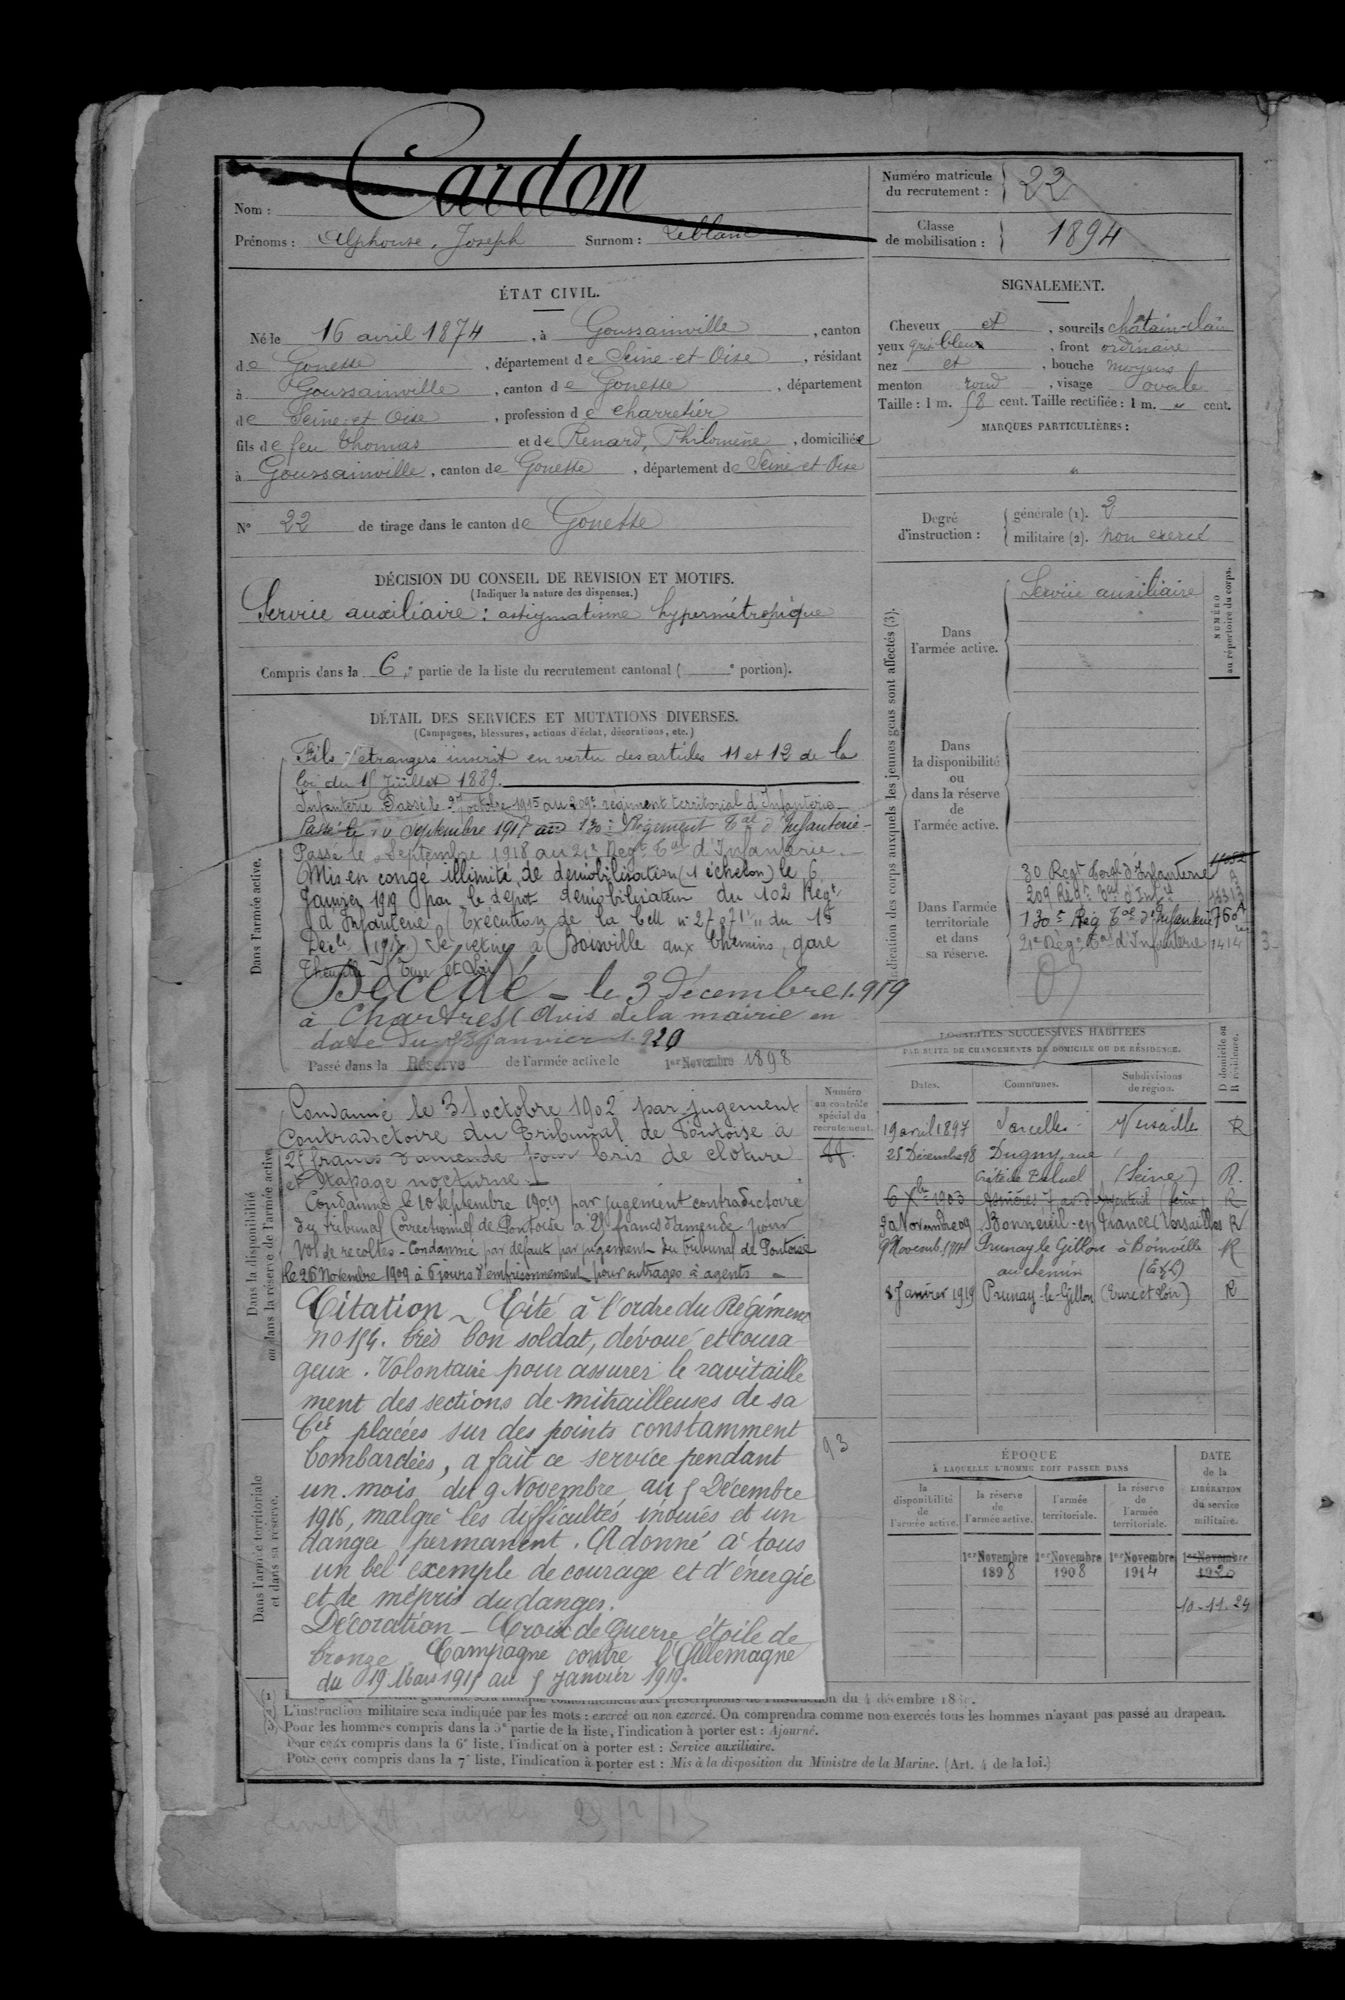 Nom : Cardon
Prénoms : Alphonse, Joseph Surnom : Leblanc
Numéro matricule du recrutement : 22
Classe de mobilisation : 1894
ÉTAT CIVIL.
Né le 16 avril 1874, à Goussainville, canton
de Gonesse, département de Seine-et-Oise, résidant
à Goussainville, canton de Gonesse, département
de Seine-et-Oise, profession de charretier
fils de feu Thomas et de Renard, Philomène, domiciliée
à Goussainville, canton de Gonesse, département de Seine-et-Oise
N° 22 de tirage dans le canton de Gonesse
SIGNALEMENT.
Cheveux et, sourcils châtain-clair
yeux gris bleus, front ordinaire
nez et, bouche moyens
menton rond, visage ovale
Taille : 1 m. 58 cent. Taille rectifiée : 1 m. " cent.
MARQUES PARTICULIÈRES :
"
Degré d'instruction : générale (1). 2
militaire (2). non exercé
DÉCISION DU CONSEIL DE REVISION ET MOTIFS.
(Indiquer la nature des dispenses.)
Service auxiliaire : astigmatisme hypermétropique
Compris dans la 6e partie de la liste du recrutement cantonal ( e portion).
DÉTAIL DES SERVICES ET MUTATIONS DIVERSES.
(Campagnes, blessures, actions d'éclat, décorations, etc.)
Dans l'armée active.
Fils d'étrangers inscrit en vertu des articles 11 et 12 de la
loi du 15 Juillet 1889.
Infanterie Passé le octobre 1915 au 209e régiment territorial d'Infanterie
Passé le Septembre 1917 au 130e Régiment Tal d'Infanterie
Passé le Septembre 1918 au 21e Regt Tal d'Infanterie.
Mis en congé illimité de démobilisation (1 échelon) le 6
Janvier 1919 par le dépôt démobilisateur du 102 Régt
d'Infanterie (Exécution de la Cell n° 27 du 15
Décbre 1918) Se retire à Boisville aux Chemins, gare
Décédé - le 3 Décembre 1919
à Chartres (Avis de la mairie en
date du 28 janvier 1920
Passé dans la Réserve de l'armée active le 1er Novembre 1898
Dans la disponibilité ou dans la réserve de l'armée active
Numéro au contrôle spécial du recrutement.
Condamné le 31 octobre 1902 par jugement
contradictoire du Tribunal de Pontoise à
25 francs d'amende pour bris de cloture
et tapage nocturne.
Condamné le 10 septembre 1909 par jugement contradictoire
du tribunal Correctionnel de Pontoise à 25 francs d'amende pour
vol de récoltes - Condamné par défaut par jugement du tribunal de Pontoise
le 26 Novembre 1909 à 6 jours d'emprisonnement pour outrages à agents
Dans l'armée territoriale et dans sa réserve.
Citation - Cité à l'ordre du Régiment
no 154. très bon soldat, dévoué et coura
geux. Volontaire pour assurer le ravitaille
ment des sections de mitrailleuses de sa
Cie placées sur des points constamment
bombardées, a fait ce service pendant
un mois du 9 Novembre au 5 Décembre
1916, malgré les difficultés inouïes et un
danger permanent. A donné à tous
un bel exemple de courage et d'énergie
et de mépris du danger.
Décoration - Croix de Guerre étoile de
bronze Campagne contre l'Allemagne
du 19 Mars 1915 au 5 Janvier 1919.
93
Indication des corps auxquels les jeunes gens sont affectés (3).
NUMÉRO au répertoire du corps.
Dans l'armée active.
Service auxiliaire
Dans la disponibilité ou dans la réserve de l'armée active.
Dans l'armée territoriale et dans sa réserve.
30 Regt Terral d'Infanterie
209 Régt Tal d'Infie
130e Rég Tal d'Infanterie
21e Régt Tal d'Infanterie 1414
LOCALITÉS SUCCESSIVES HABITÉES
PAR SUITE DE CHANGEMENTS DE DOMICILE OU DE RÉSIDENCE.
Dates. Communes. Subdivisions de région. D domicile ou R résidence.
19 avril 1897 Sarcelles Versailles R
25 Décembre 98 Dugny, rue
(Seine) R.
6 Xbre 1903 Asnières (Seine) R
Novembre 09 Bonneuil-en-France (Versailles R
9 Novemb. 1911 Prunay le Gillon à Boinville
au chemin (E&L) R
8 Janvier 1919 Prunay-le-Gillon (Eure et Loir) R
ÉPOQUE
À LAQUELLE L'HOMME DOIT PASSER DANS
DATE de la LIBÉRATION du service militaire.
la disponibilité de l'armée active.
la réserve de l'armée active.
l'armée territoriale.
la réserve de l'armée territoriale.
1er Novembre 1898
1er Novembre 1908
1er Novembre 1914
1er Novembre 1920
10-11.24
du 4 décembre 18
L'instruction militaire sera indiquée par les mots : exercé ou non exercé. On comprendra comme non exercés tous les hommes n'ayant pas passé au drapeau.
Pour les hommes compris dans la 5e partie de la liste, l'indication à porter est : Ajourné.
Pour ceux compris dans la 6e liste, l'indication à porter est : Service auxiliaire.
Pour ceux compris dans la 7e liste, l'indication à porter est : Mis à la disposition du Ministre de la Marine. (Art. 4 de la loi.)